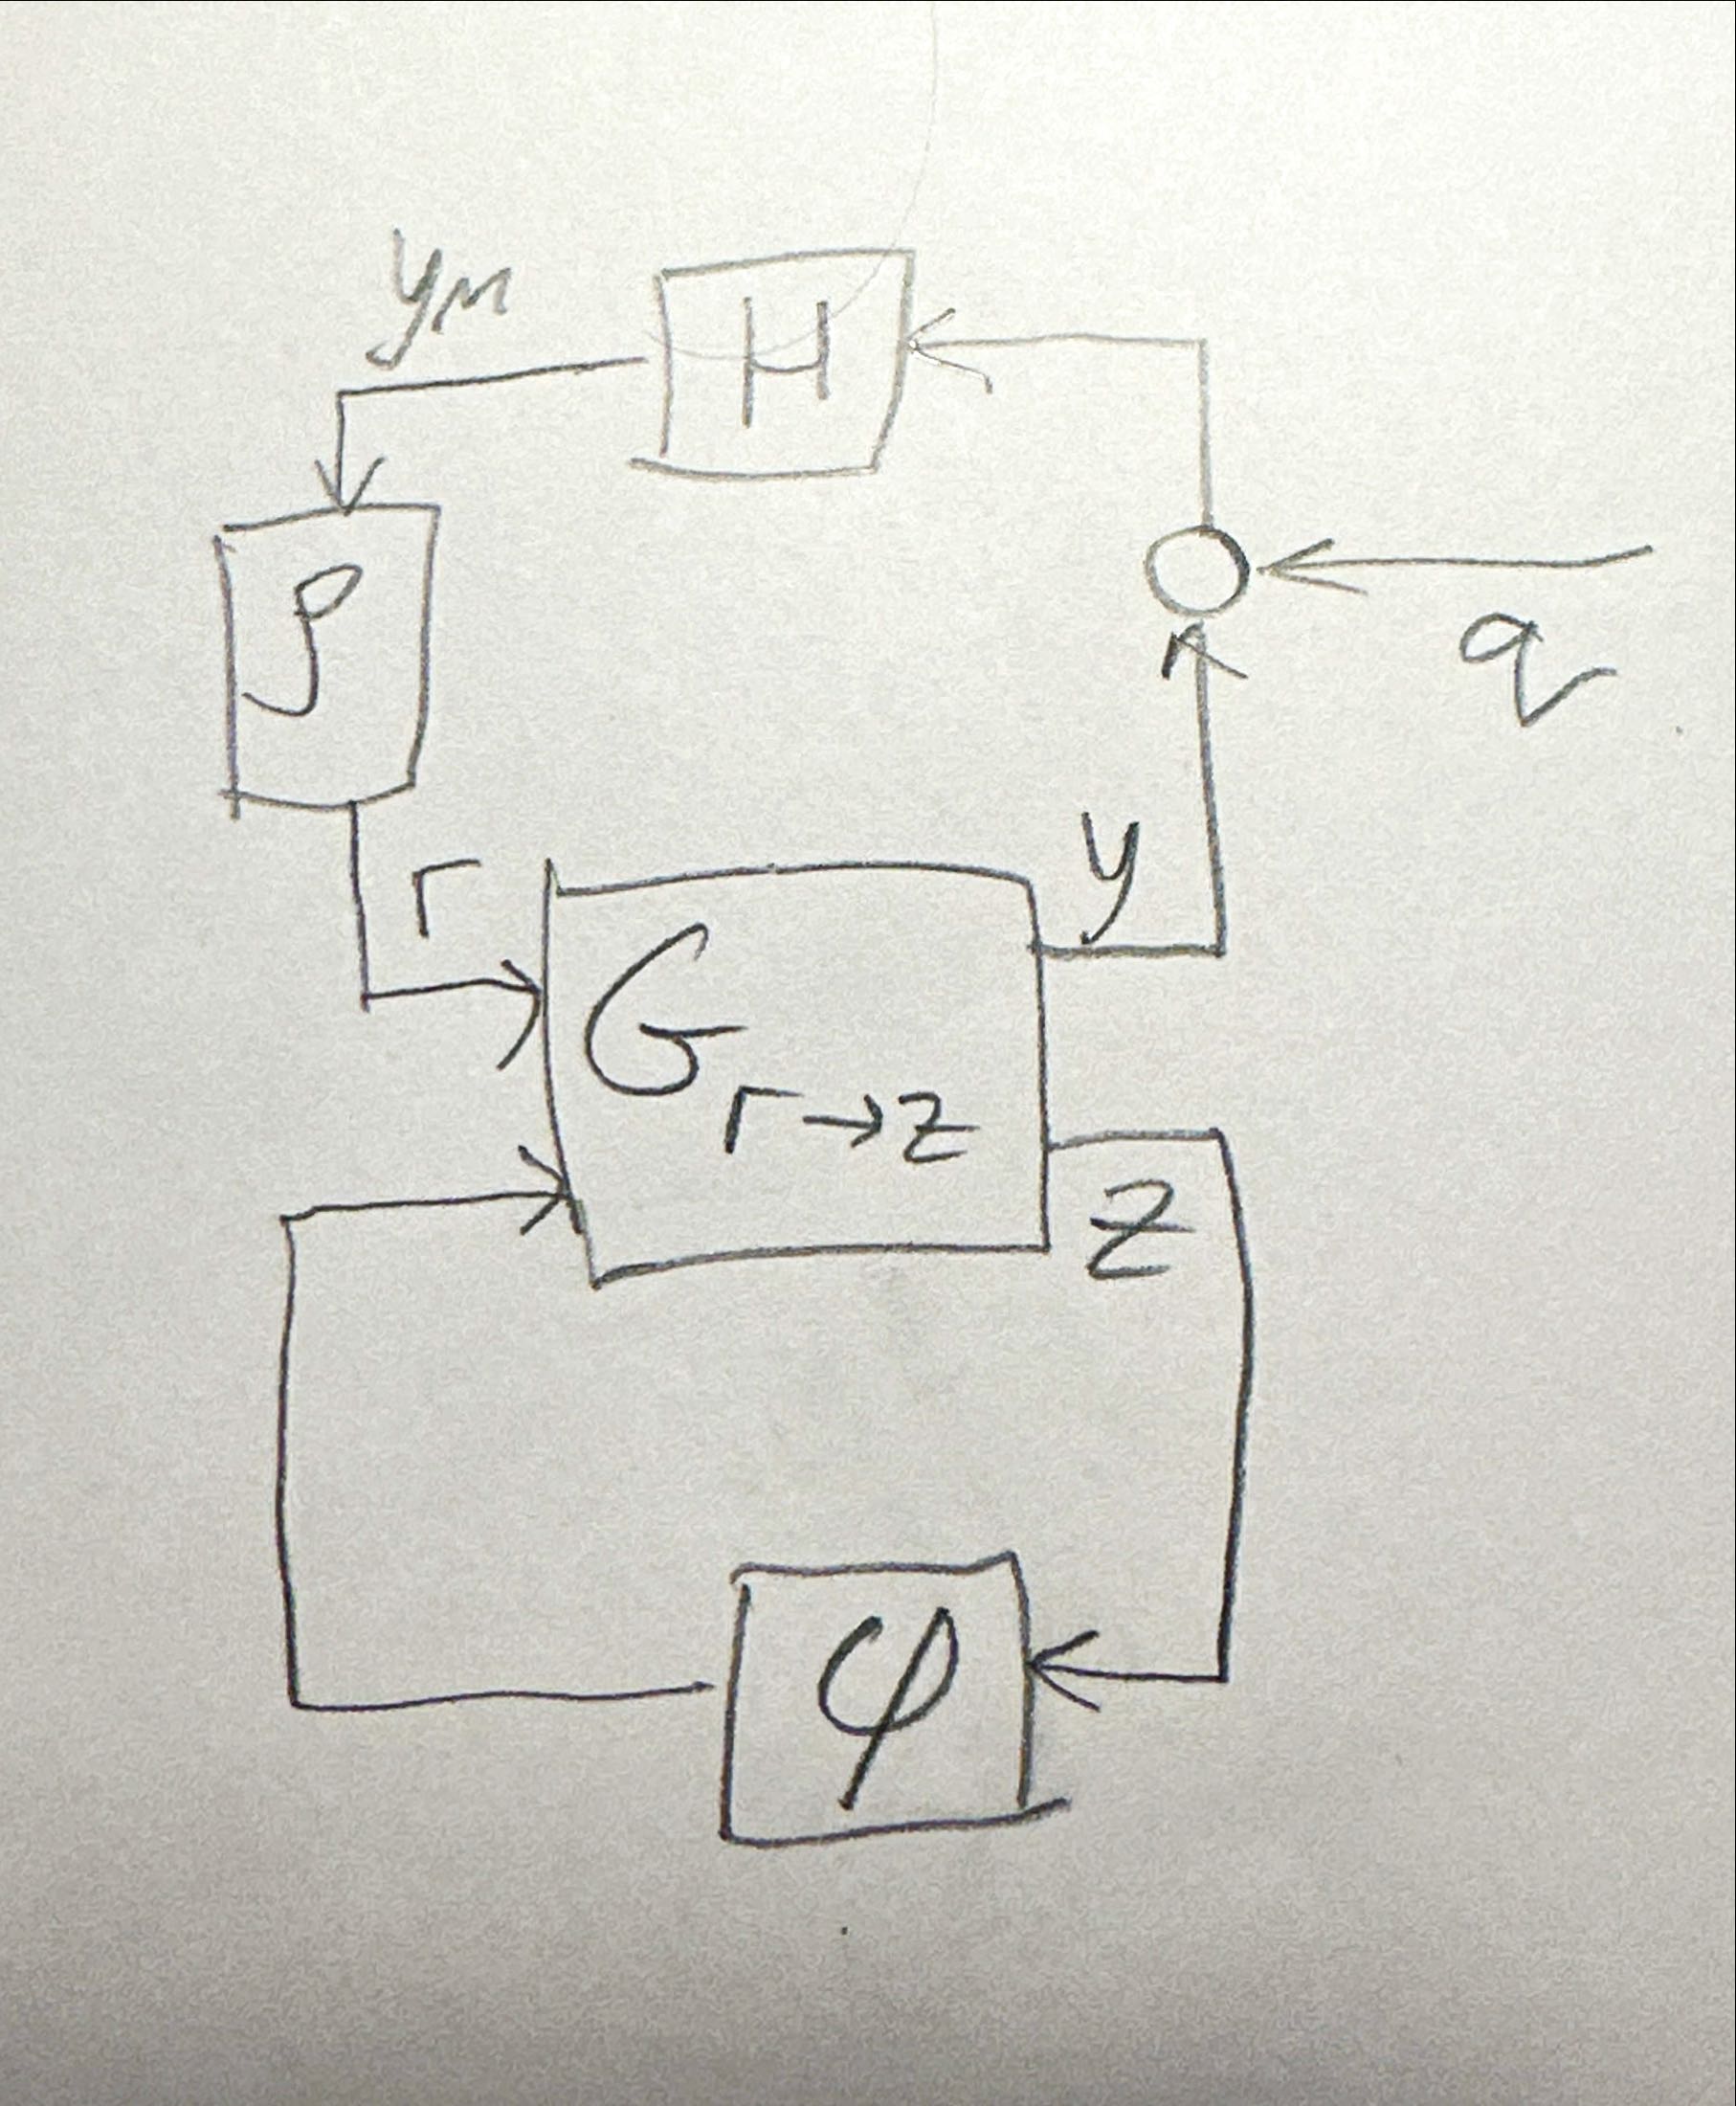 ym
H
ρ
q
r
y
G r→z
z
φ